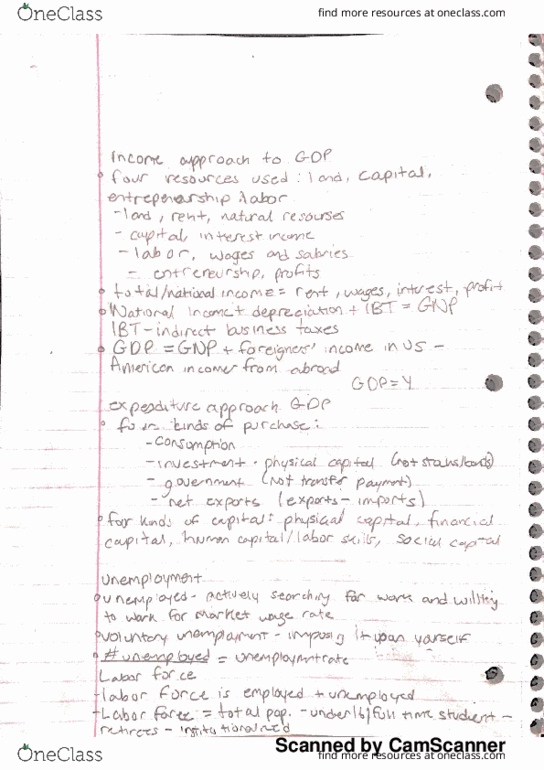 OneClass
find more resources at oneclass.com
Income approach to GDP
four resources used: land, capital,
entrepenership & labor
- land, rent, natural resourses
- capital, interest income
- labor, wages and salaries
- entrereurship, profits
total/national income = rent, wages, interest, profit
National Income + depreciation + IBT = GNP
IBT - indirect business taxes
GDP = GNP + foreigners' income in US -
American incomes from abroad
GDP = Y
expediture approach GDP
four kinds of purchase:
- consumption
- investment - physical capital (not stocks/bonds)
- government (not transfer payment)
- net exports (exports - imports)
for kinds of capital: physical capital, financial
capital, human capital/labor skills, social capital
Unemployment
unemployed - actively searching for work and willing
to work for market wage rate
voluntary unemployment - imposing it upon yourself
# unemployed = unemployment rate
Labor force
- labor force is employed + unemployed
- Labor force = total pop. - under 16/full time student -
retirees - institutionalized
Scanned by CamScanner
OneClass
find more resources at oneclass.com